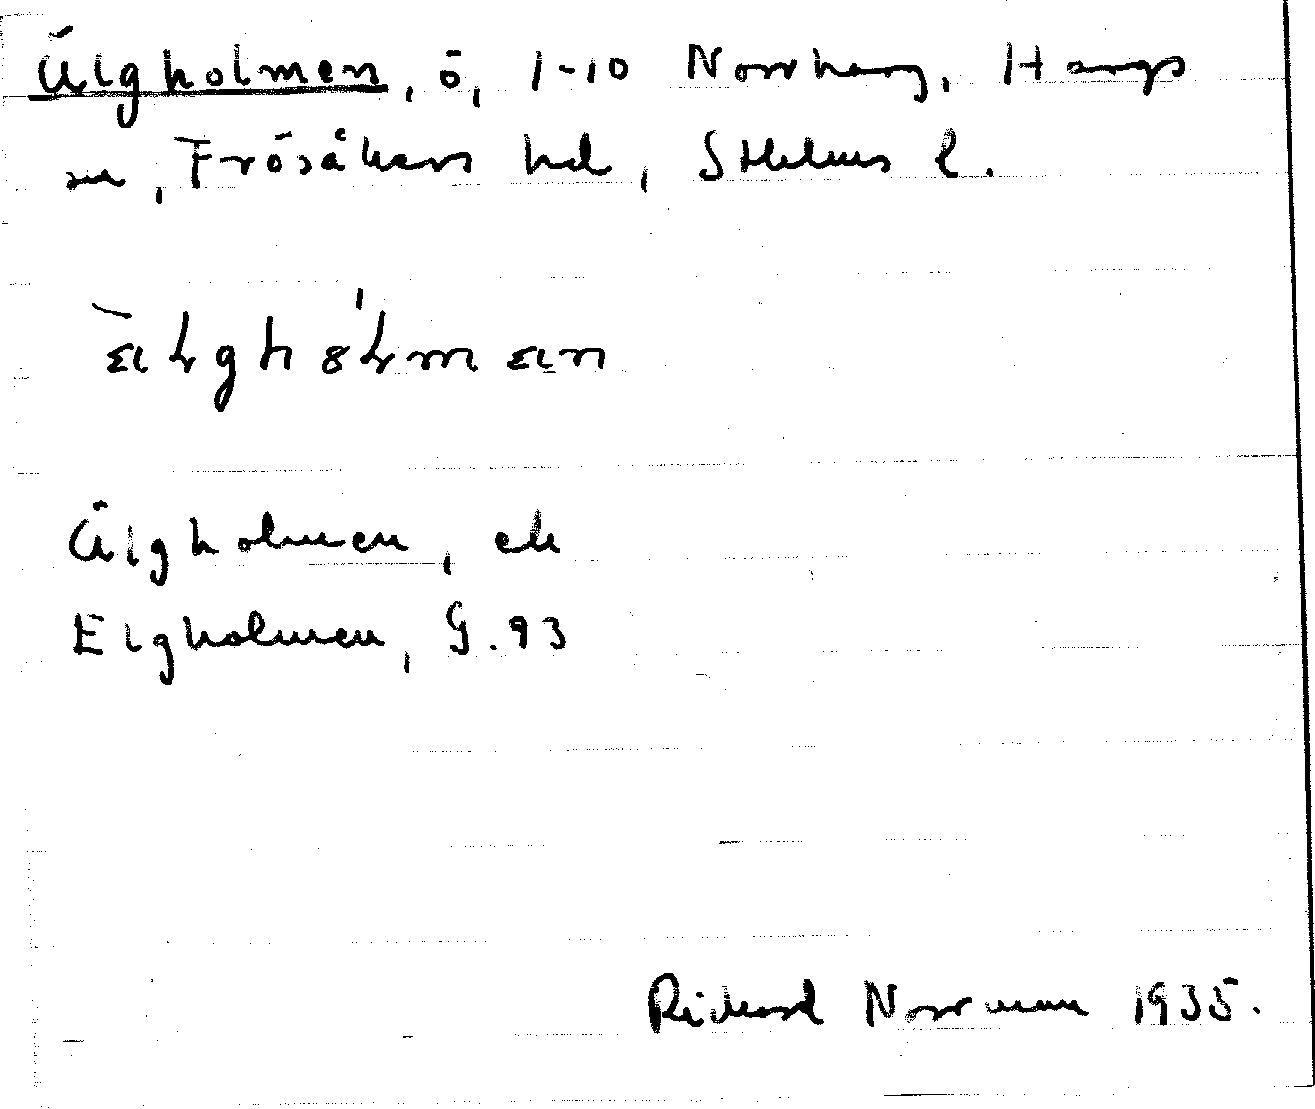 Älgholmen, ö, 1-10 Norrharg, Hargs
sn, Frösåkers hd, Sthlms l.
Älgholmen, ek
Elgholmen, G. 93
Rickard Norrman 1935.